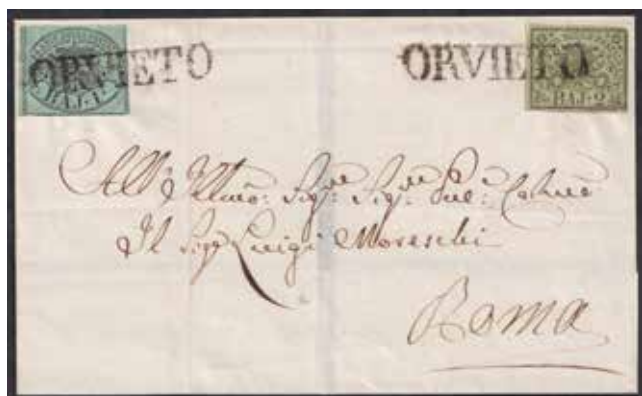 ORVIETO ORVIETO
BAJ. 1 BAJ. 2
All' Illmo: Sigre Sigre
Il Sigr Luigi Moreschi
Roma